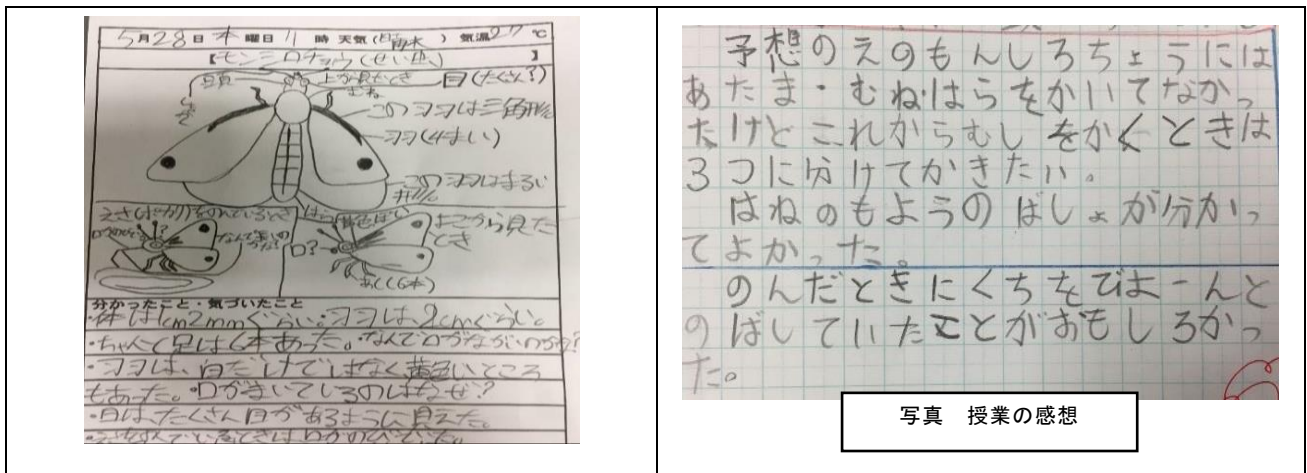 5月28日 木曜日 11時 天気( ) 気温27℃
【モンシロチョウ(せい虫)】
頭
上から見たとき
目(たくさん?)
むね
この羽は三角形
羽(4まい)
この羽はまるい
はら
よこから見た
とき
口?
あし(6本)
分かったこと・気づいたこと
・体は1cm2mmぐらい。羽は、2cmぐらい。
・ちゃんと足は6本あった。・なんで口がながいのかな?
・羽は、白だけではなく黄色いところ
もあった。・口がまいているのはなぜ?
・目は、たくさん目があるように見えた。
予想のえのもんしろちょうには
あたま・むね・はらをかいてなかっ
たけどこれからむしをかくときは
3つに分けてかきたい。
はねのもようのばしょが分かっ
てよかった。
のんだときにくちをびよーんと
のばしていたことがおもしろかっ
た。
写真 授業の感想